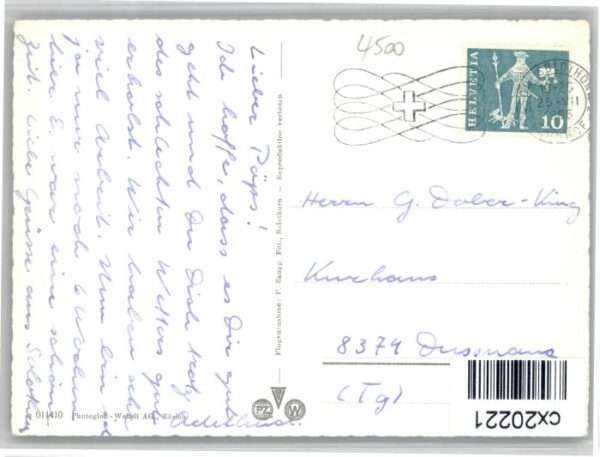 4500
HELVETIA
10
Lieber Päps!
Ich hoffe, dass es Dir gut
geht und Du Dich trotz
des schlechten Wetters gut
erholst. Wir haben sehr
viel Arbeit. Nun bin ich
ja nur noch 6 Wochen
hier. Es war eine schöne
Zeit. Liebe Grüsse aus Solothurn
Adelheid
Flugaufnahme: P. Zaugg Fot., Solothurn. — Reproduktion verboten
Herrn G. Dober-Küng
Kurhaus
8374 Dussnang
(Tg)
011410 Photoglob-Wehrli AG., Zürich
PZ W
cx20221